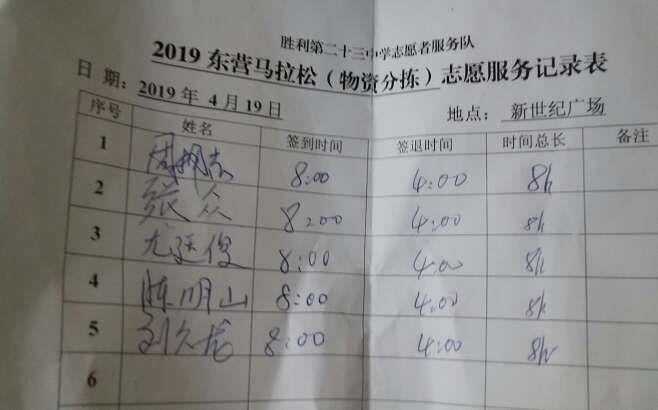 胜利第二十三中学志愿者服务队
2019 东营马拉松（物资分拣）志愿服务记录表
日 期：2019 年 4 月 19 日 地点： 新世纪广场
序号 姓名 签到时间 签退时间 时间总长 备注
1 8:00 4:00 8h
2 张众 8:00 4:00 8h
3 尤廷俊 8:00 4:00 8h
4 陈明山 8:00 4:00 8h
5 8:00 4:00 8h
6